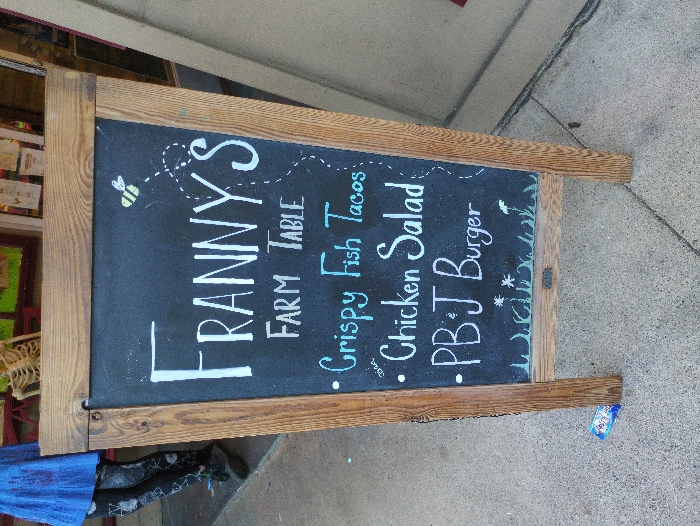 FRANNYS
FARM TABLE
• Crispy Fish Tacos
• Chicken Salad
• PB&J Burger